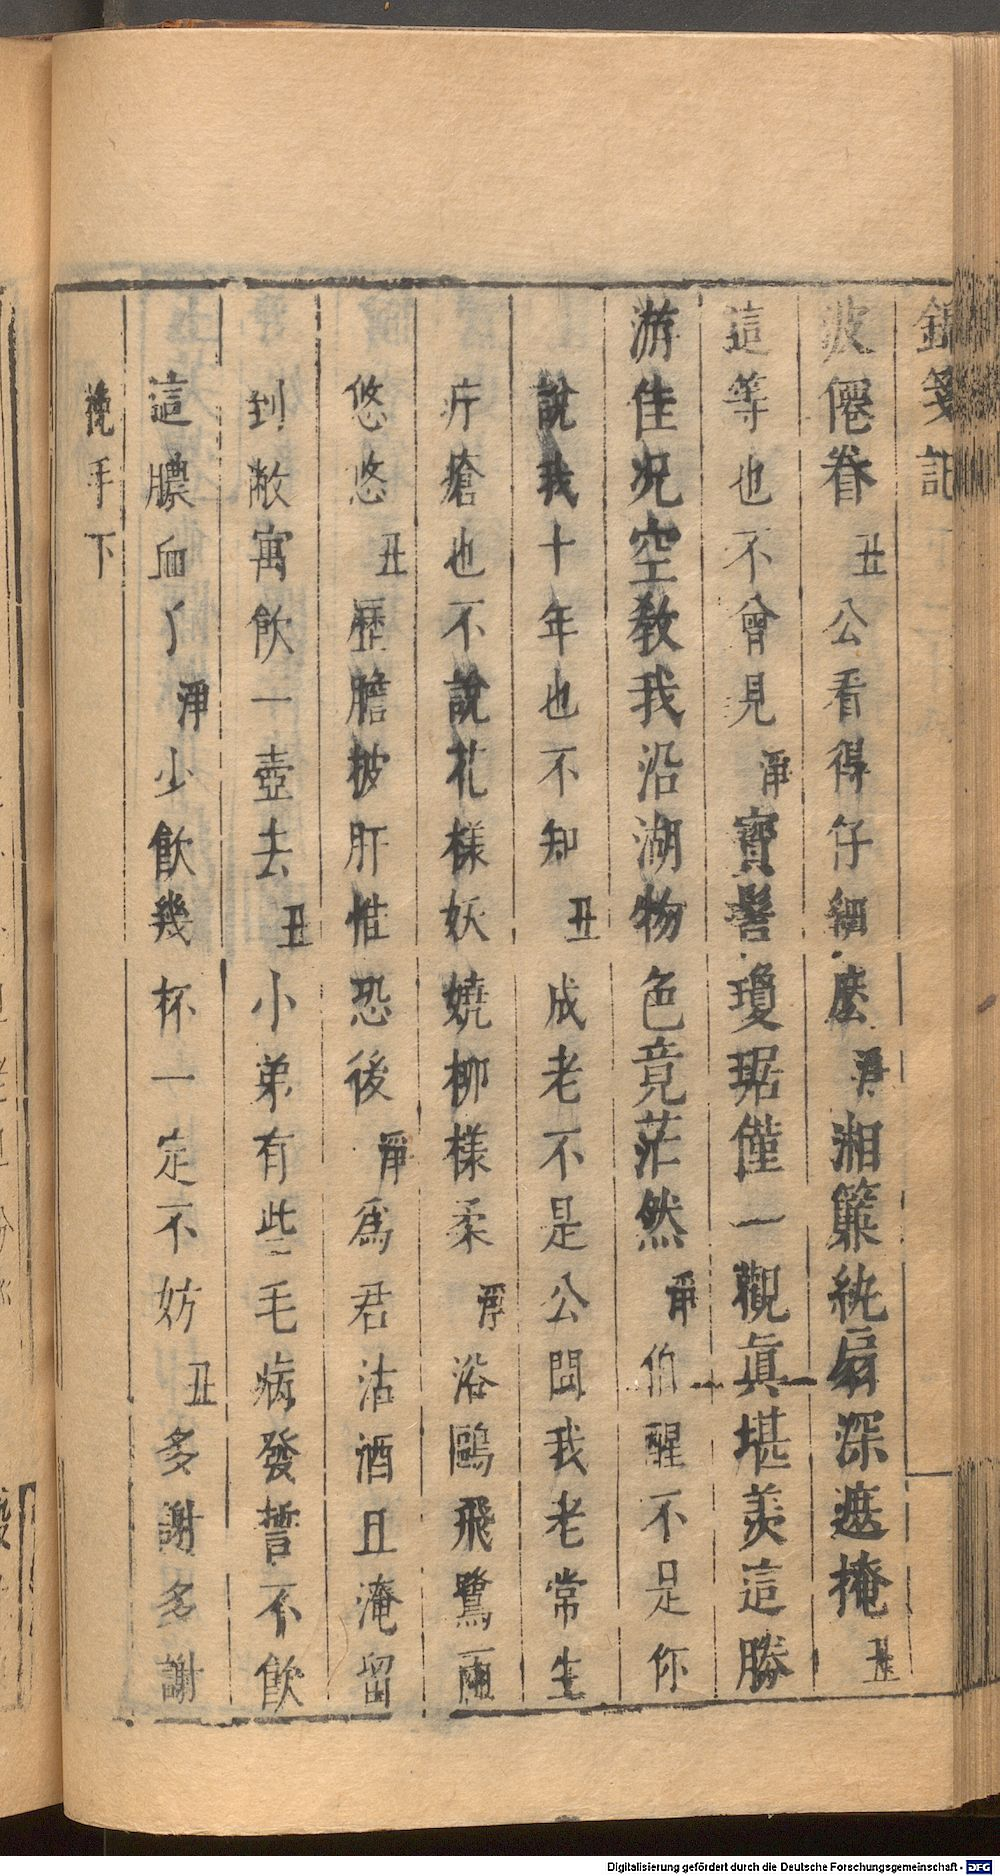 錦箋記
波僊眷丑公看得仔細麽淨湘簾紈扇深遮掩丑
這等也不曾見淨寶髻瓊琚僅一觀眞堪羨這勝
游佳况空教我沿湖物色竟茫然淨伯醒不是你
說我十年也不知丑成老不是公問我老常生
疔瘡也不說花樣妖嬈柳樣柔淨浴鷗飛鷺兩
悠悠丑瀝膽披肝惟恐後淨爲君沽酒且淹留
到敝寓飲一壺去丑小弟有些毛病發誓不飲
這膿血了淨少飲幾杯一定不妨丑多謝多謝
挽手下
Digitalisierung gefördert durch die Deutsche Forschungsgemeinschaft - DFG